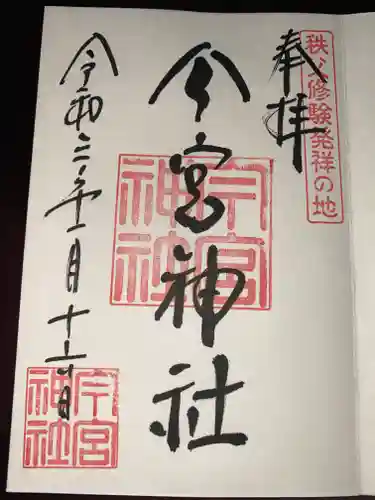 秩父修験発祥の地
奉拝
今宮神社
今宮神社
令和二年一月十二日
今宮神社